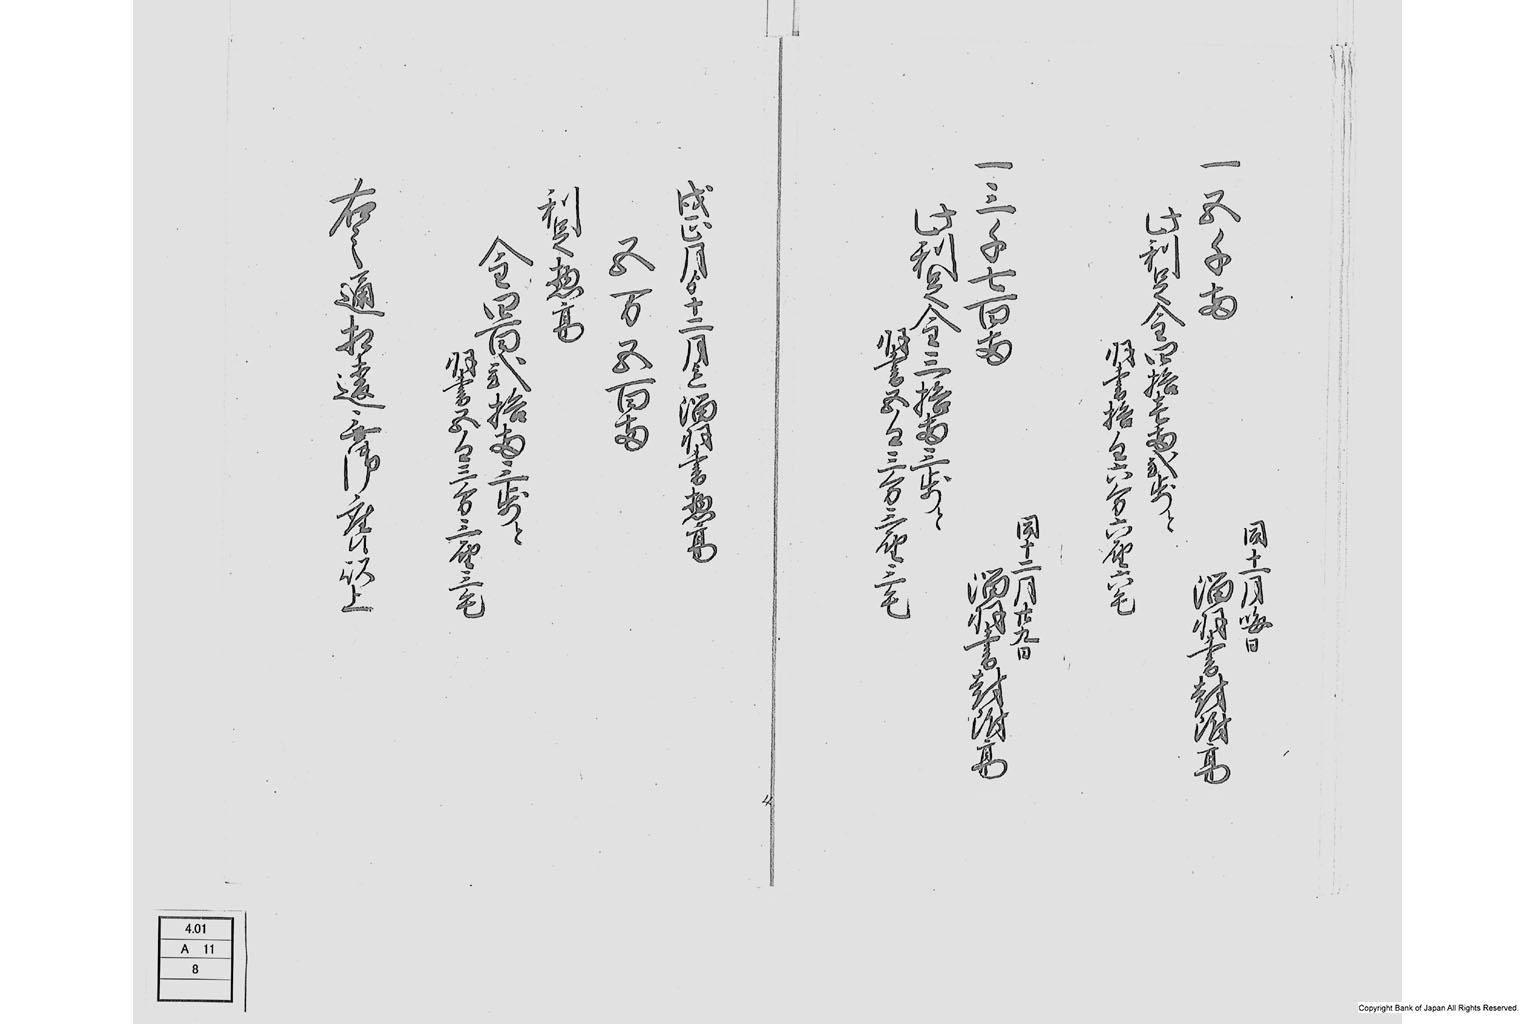 同十一月晦日
一五千両 溜羽書封附高
此利足金四拾壱両弐歩と
羽書拾匁六分六厘六毛
同十二月廿九日
一三千七百両 溜羽書封附高
此利足金三拾両三歩と
羽書五匁三分三厘三毛
戌正月ゟ十二月迄溜羽書惣高
五万五百両
利足惣高
金四百弐拾両三歩と
羽書五匁三分三厘三毛
右之通相違無御座候以上
4.01
A 11
8
Copyright Bank of Japan All Rights Reserved.